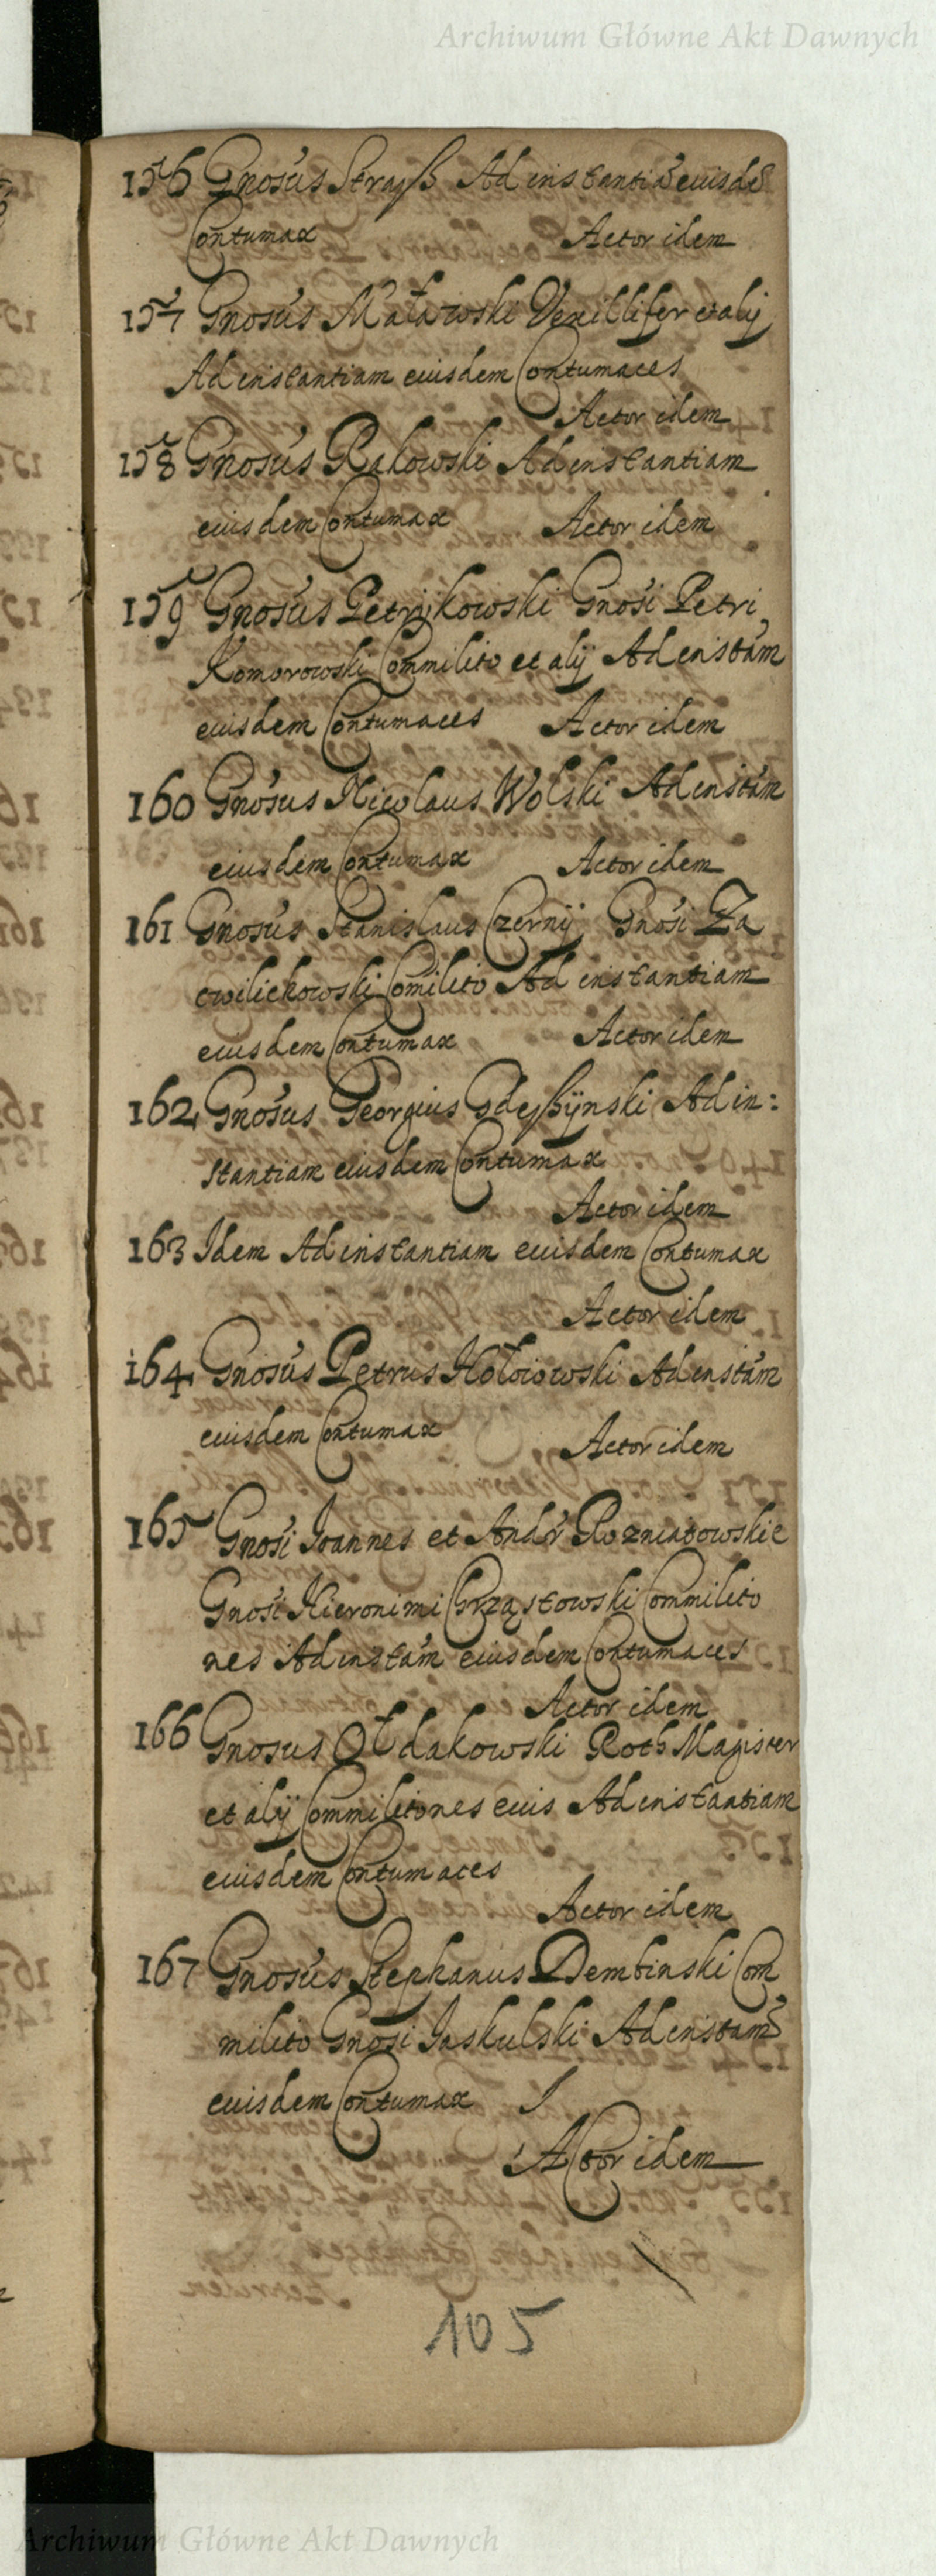 Archiwum Główne Akt Dawnych
156 Gnosus Strayß Ad instantiã euisdẽ
Contumax Actor idem
157 Gnosus Maławski Vexillifer et alij
Ad instantiam euisdem Contumaces
Actor idem
158 Gnosus Rakowski Ad instantiam
euisdem Contumax Actor idem
159 Gnosus Petrijkowski Gnosi Petri
Komorowski Commilito et alij Ad instãm
euisdem Contumaces Actor idem
160 Gnosus Nicolaus Wolski Ad instãm
euisdem Contumax Actor idem
161 Gnosus Stanislaus Czernij Gnosi Za
cwilichowski Comilito Ad instantiam
euisdem Contumax Actor idem
162 Gnosus Georgius Gdeßÿnski Ad in:
stantiam euisdem Contumax
Actor idem
163 Idem Ad instantiam euisdem Contumax
Actor idem
164 Gnosus Petrus Hołowski Ad instãm
euisdem Contumax Actor idem
165 Gnosi Joannes et Andr Rozniatowskie
Gnosi Hieronimi Chrząstowski Commilito
nes Ad instãm euisdem Contumaces
Actor idem
166 Gnosus Ołdakowski Roth Magister
et alij Commilitones euis Ad instantiam
euisdem Contumaces
Actor idem
167 Gnosus Stephanus Dembinski Com
milito Gnosi Jaskulski Ad instãm
euisdem Contumax
Actor idem
105
Archiwum Główne Akt Dawnych